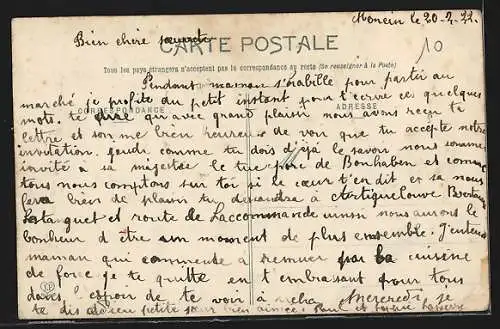 Monein le 20-2-22
10
Bien chère sœurette
CARTE POSTALE
Tous les pays étrangers n'acceptent pas la correspondance au recto (Se renseigner à la Poste)
Pendant maman s'habille pour partir au
marché je profite du petit instant pour t'écrire ces quelques
CORRESPONDANCE
ADRESSE
mots. te dire qu'avec grand plaisir nous avons reçu ta
lettre et somme bien heureuse de voir que tu accepte notre
invitation. comme tu dois déjà le savoir nous sommes
invité à sa majesté le tue porc de Bonhaben et comme
tous nous comptons sur toi si le cœur t'en dit et sa nous
fera bien de plaisir tu descendra à Artiguelouve
et route de Laccommande aussi nous aurons le
bonheur d être un moment de plus ensemble. J'entend
maman qui commence a remuer par la cuisine
de force je te quitte en t embrassant pour tous
dans l'espoir de te voir à Mercredi je
te dis adieu petite sœur bien aimée. Paul et